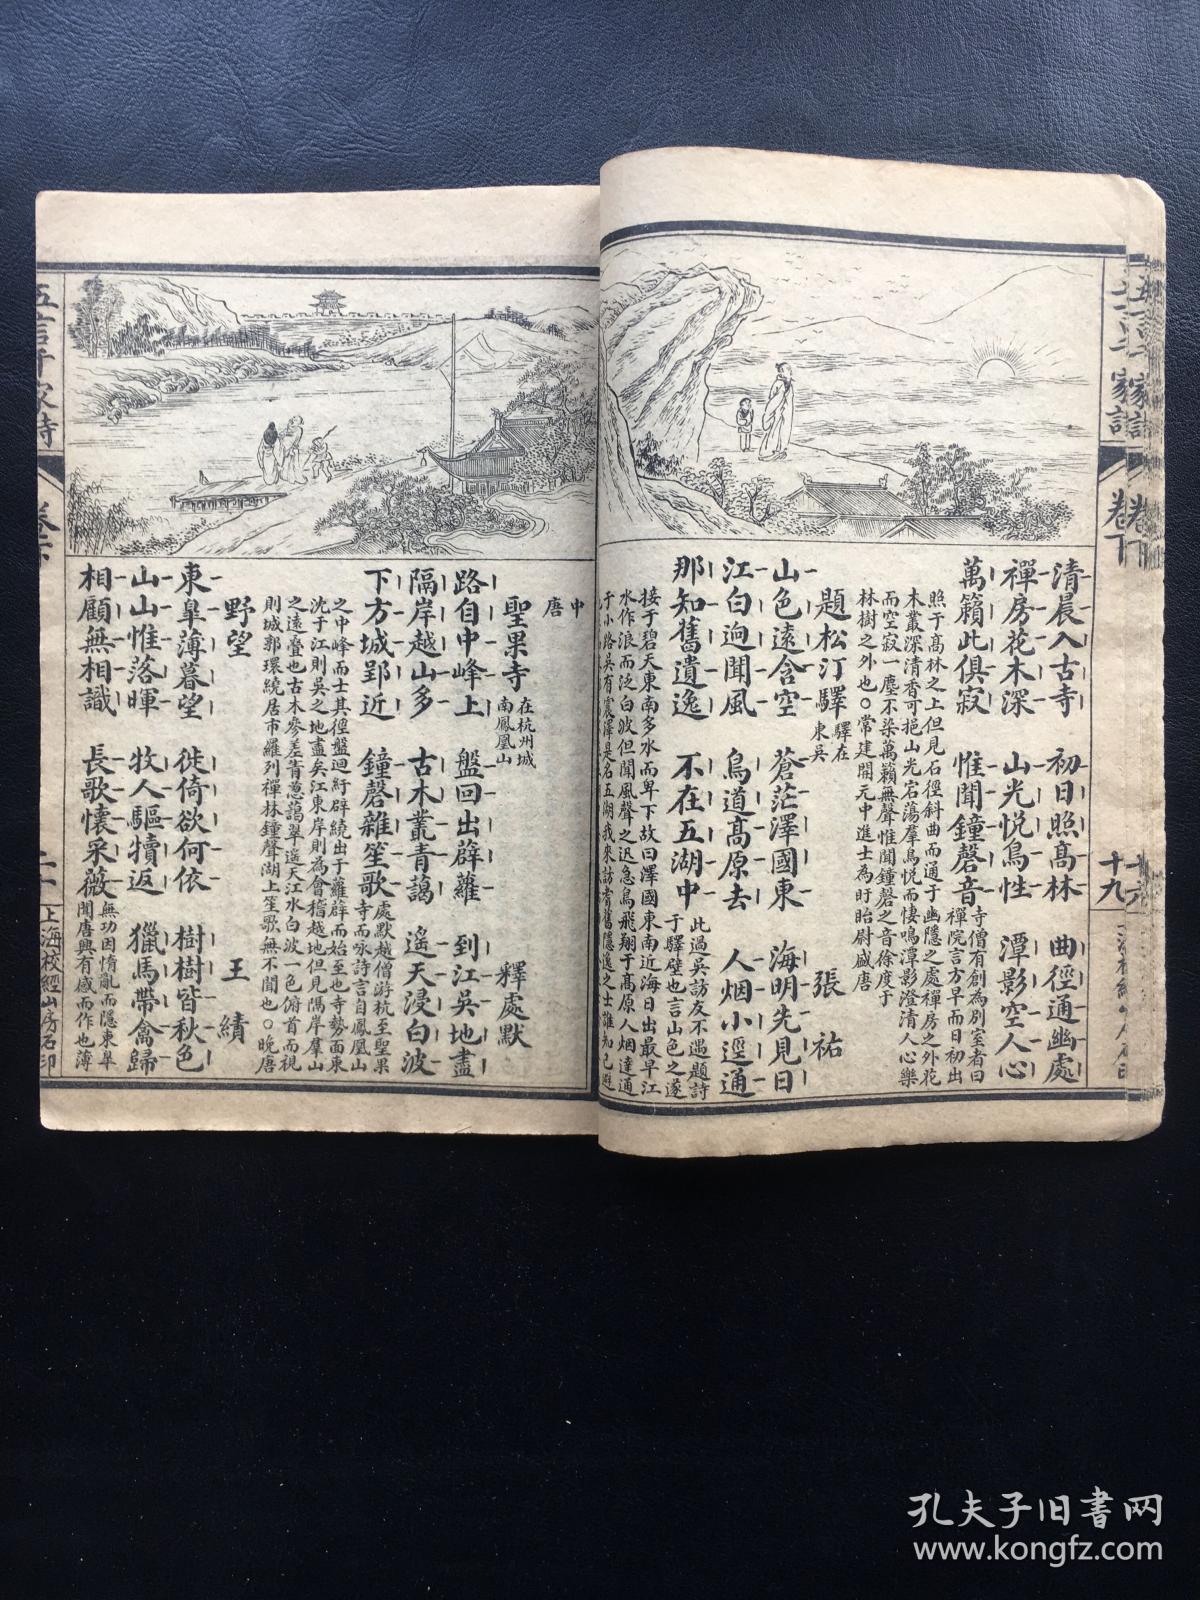 清晨入古寺 初日照高林 曲徑通幽處
禪房花木深 山光悅鳥性 潭影空人心
萬籟此俱寂 惟聞鐘磬音 寺僧有創為別室者曰
禪院言方早而日初出
照于高林之上但見石徑斜曲而通于幽隱之處禪房之外花
木叢深清香可挹山光宕蕩羣鳥悅而悽鳴潭影澄清人心樂
而空寂一塵不染萬籟無聲惟聞鐘磬之音徐度于
林樹之外也○常建開元中進士為盱眙尉盛唐
題松汀驛 驛在
東吳 張祐
山色遠含空 蒼茫澤國東 海明先見日
江白迥聞風 鳥道高原去 人烟小逕通
那知舊遺逸 不在五湖中 此過吳訪友不遇題詩
于驛壁也言山色之遂
接于碧天東南多水而卑下故曰澤國東南近海日出最早江
水作浪而泛白波但聞風聲之迅急鳥飛翔于高原人烟達通
于小路吳有震澤是名五湖我來訪耆舊隱逸之士誰知已避
中
唐
聖果寺 在杭州城
南鳳凰山 釋處默
路自中峰上 盤回出薜蘿 到江吳地盡
隔岸越山多 古木叢青謁 遙天浸白波
下方城郢近 鐘磬雜笙歌 處默越僧游杭至聖果
寺而咏詩言自鳳凰山
之中峰而士其徑盤迴紆辟繞出于蘿薜而始至也寺勢面東
沈于江則吳之地盡矣江東岸則為會稽越地但見隔岸羣山
之遠疊也古木參差青蔥藹翠遙天江水白波一色俯首而視
則城郭環繞居市羅列禪林鐘聲湖上笙歌無不聞也○晚唐
野望 王績
東皐薄暮望 徙倚欲何依 樹樹皆秋色
山山惟落暉 牧人驅犢返 獵馬帶禽歸
相顧無相識 長歌懷采薇 無功因惰亂而隱東皐
聞唐興有感而作也薄
五言千家詩
上海校經山房石印
家詩
卷下
十九
孔夫子旧書网
www.kongfz.com